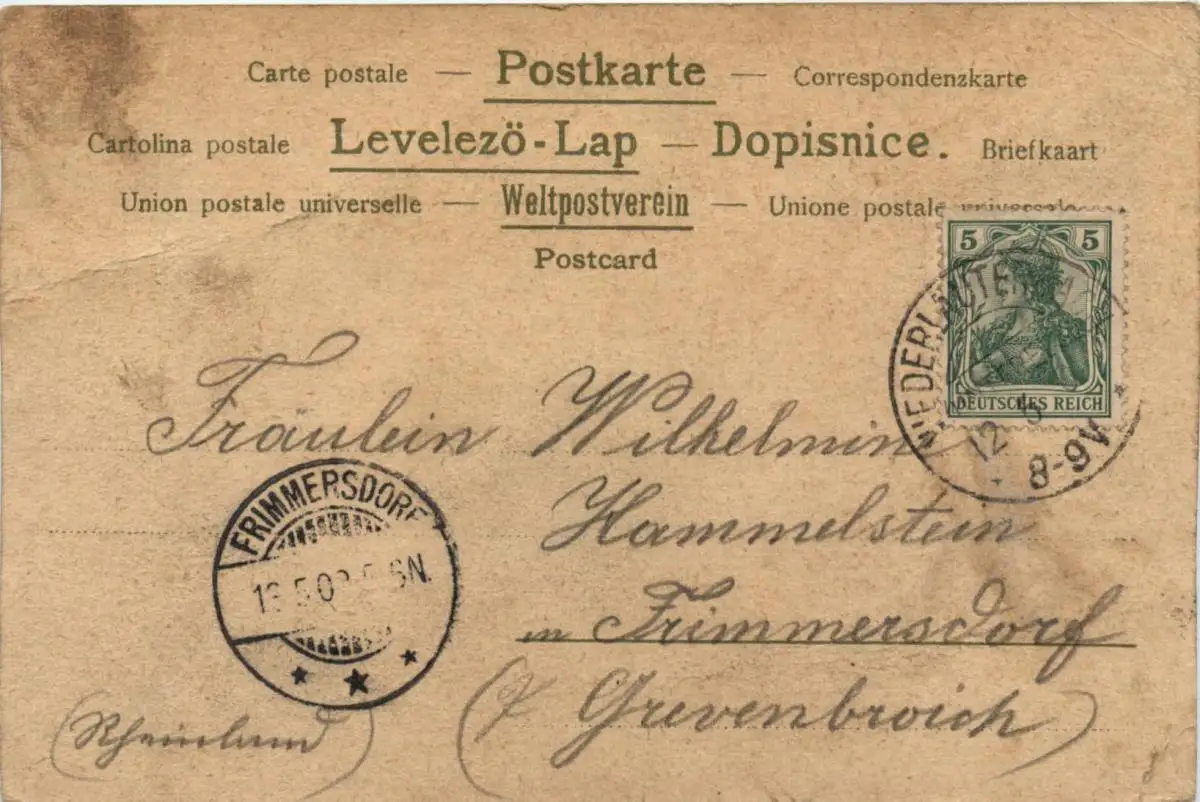 Carte postale — Postkarte — Correspondenzkarte
Cartolina postale Levelezö-Lap — Dopisnice. Briefkaart
Union postale universelle — Weltpostverein — Unione postale universale
Postcard
5 5
DEUTSCHES REICH
12 5
8-9V
Fräulein Wilhelmine
Hammelstein
in Frimmersdorf
Grevenbroich)
(Rheinland)
FRIMMERSDORF